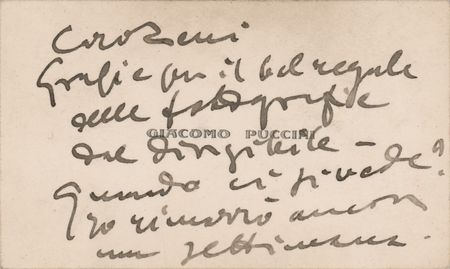 Caro Zeni
Grazie per il bel regalo
delle fotografie
GIACOMO PUCCINI
dal dirigibile –
Quando ci si vede?
Io rimarrò ancora
una settimana.